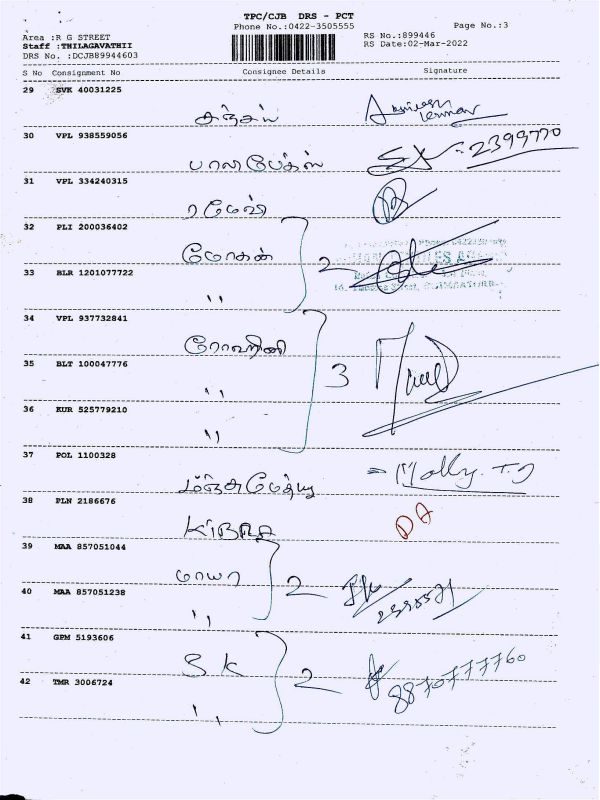 TPC/CJB DRS - PCT
Phone No.:0422-3505555
Page No.:3
Area :R G STREET
Staff :THILAGAVATHII
DRS No. :DCJB89944603
RS No.:899446
RS Date:02-Mar-2022
S No Consignment No Consignee Details Signature
29 SVK 40031225
30 VPL 938559056
2399770
31 VPL 334240315
ரமேஷ்
32 PLI 200036402
மோகன் 2
33 BLR 1201077722
,,
34 VPL 937732841
35 BLT 100047776
,, 3
36 KUR 525779210
,,
37 POL 1100328
Molly. T J
38 PLN 2186676
DA
39 MAA 857051044
மாயா 2
40 MAA 857051238
,,
41 GPM 5193606
SK 2
8870777760
42 TMR 3006724
,,